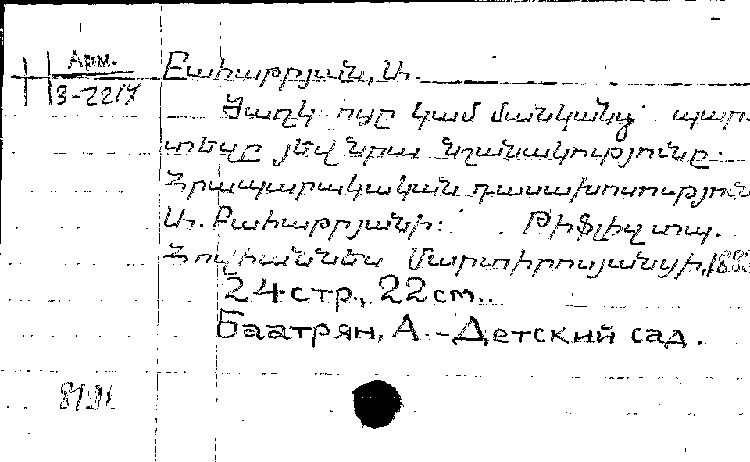 Арм.
3-2217
Բահաթրյան, Ա.
Ծաղկոցը կամ մանկանց պար-
տեզը յեվ նրա նշանակությունը.
Հրապարակական դասախոսություն
Ա. Բահաթրյանի: Թիֆլիզ տպ.
Հովհաննես Մարտիրոսյանցի, 188
24 стр., 22 см.
Баатрян, А. - Детский сад.